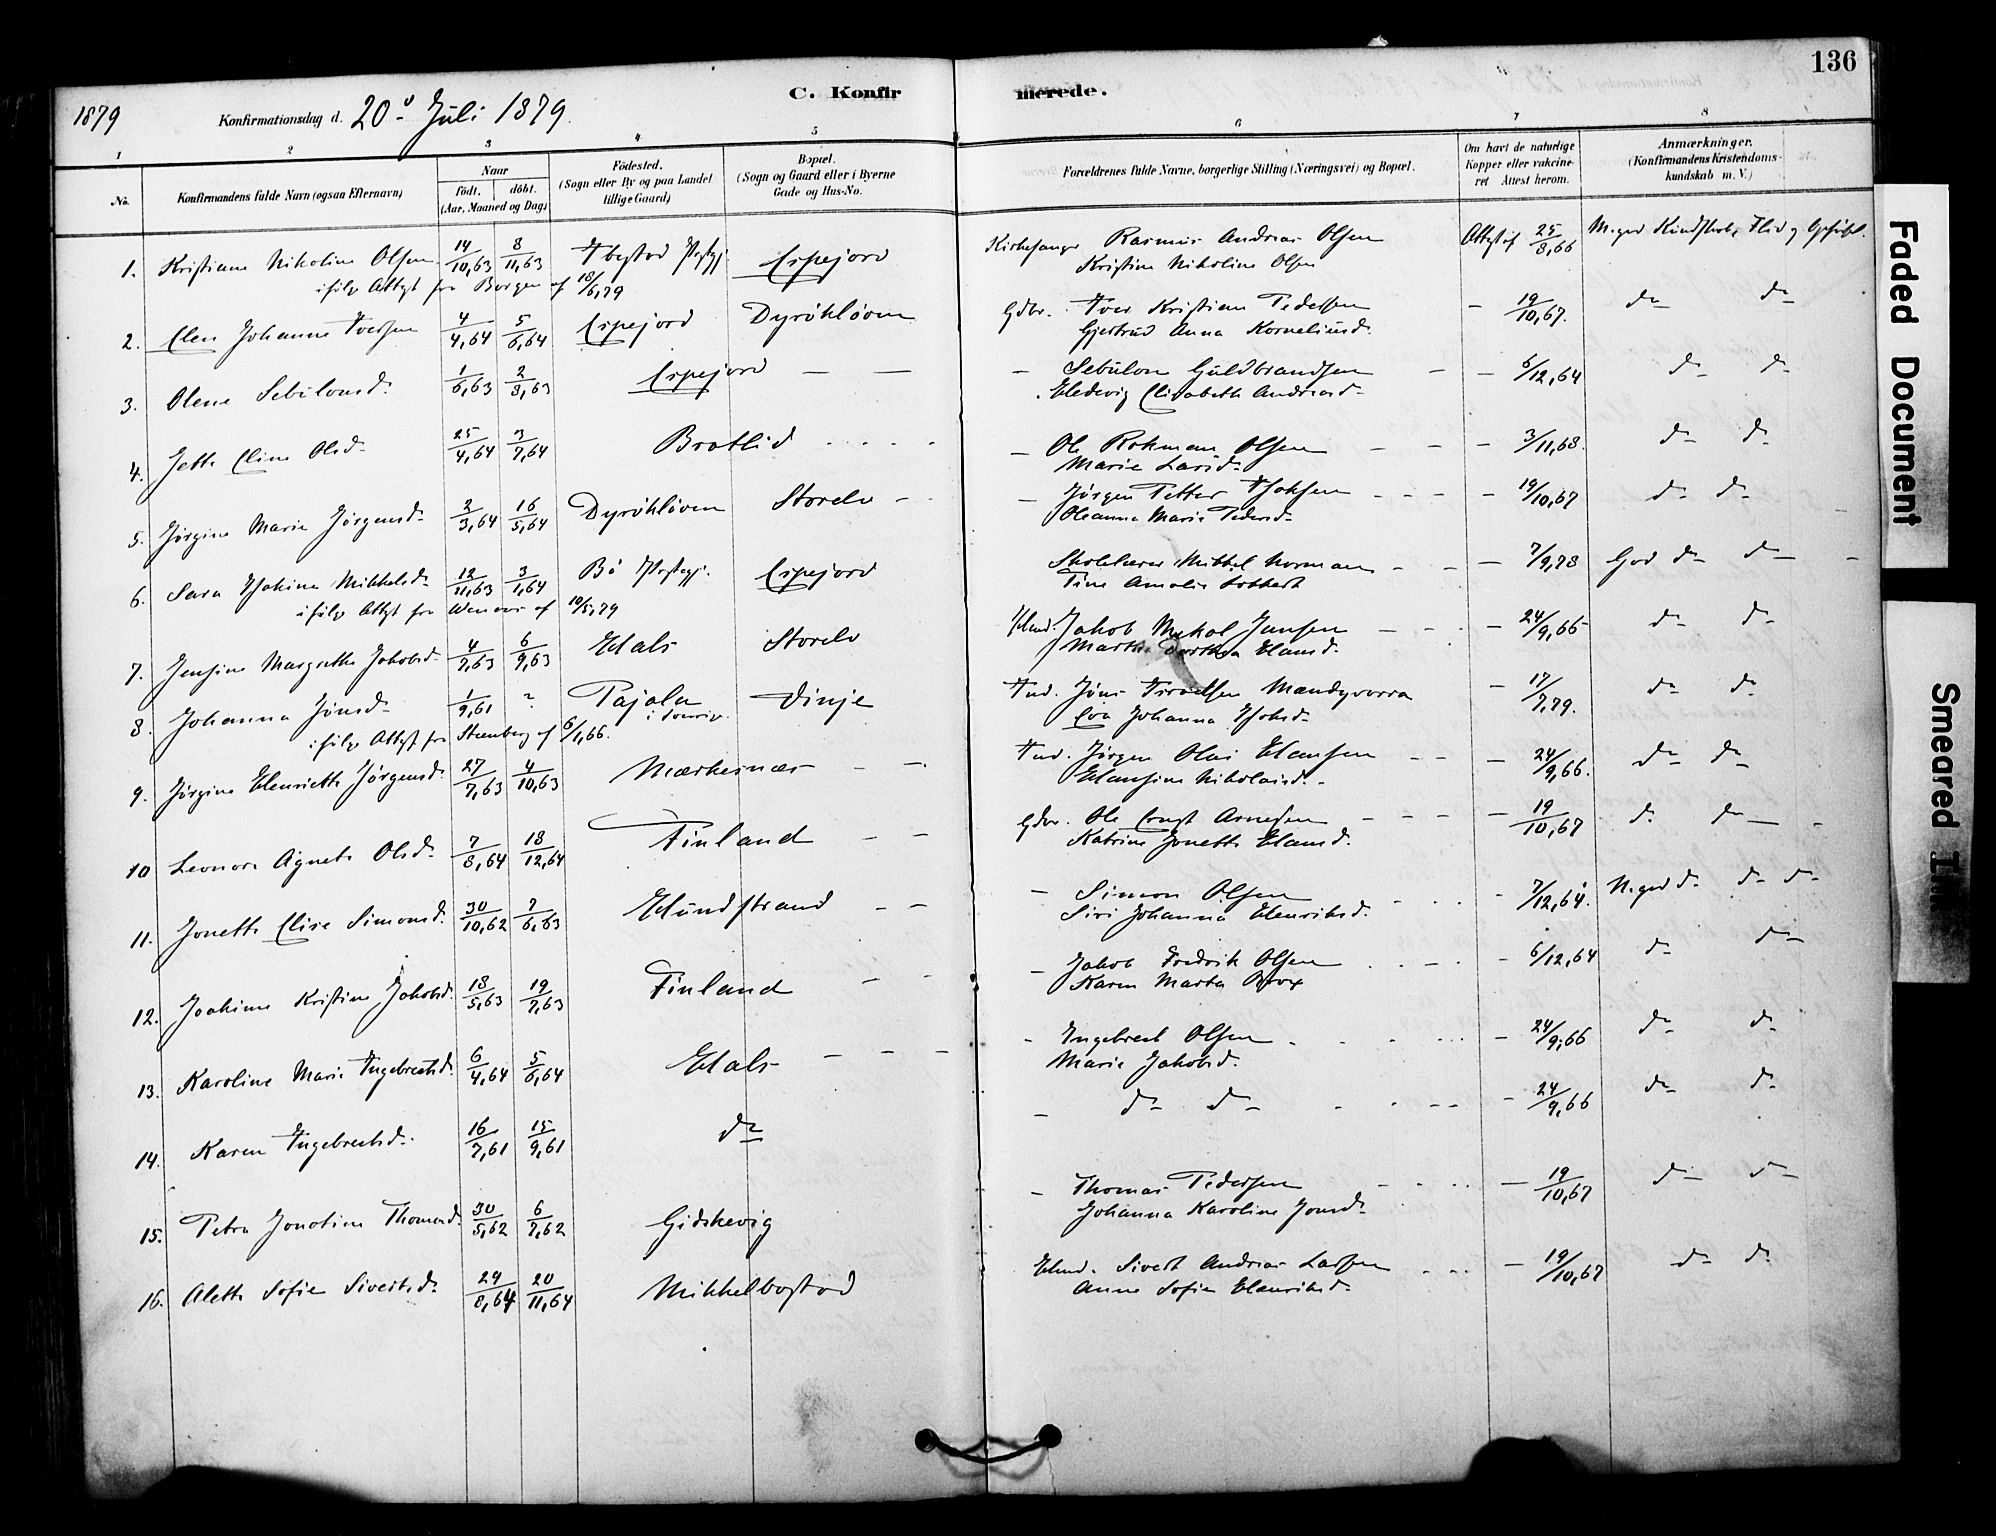 136
1879
Konfirmationsdag d. 20de Juli 1879.
C. Konfirmerede.
1 2 3 4 5 6 7 8
No.
Konfirmandens fulde Navn (ogsaa Efternavn)
Naar
födt. döbt.
(Aar, Maaned og Dag)
Födested.
(Sogn eller By og paa Landet
tillige Gaard)
Bopæl.
(Sogn og Gaard eller i Byerne
Gade og Hus-No.
Forældrenes fulde Navne, borgerlige Stilling (Næringsvei) og Bopæl.
Om havt de naturlige
Kopper eller vakcine-
ret Attest herom.
Anmærkninger.
(Konfirmandens Kristendoms-
kundskab m. V.)
1. Kristiane Nikoline Olsen 14/10,63 8/11,63 Ibestad Prstgj. Espejord Kirkesanger Rasmus Andreas Olsen Attest af 25/8,66 M. god Kundskab, Flid og
ifølge Attest fra Borgen af 18/6,79 Kristine Nikoline Olsen
2. Elen Johanne Iversen 4/4,64 5/6,64 Espejord Dyröhløven Gdbr. Iver Kristian Pedersen - 19/10,67. do do
Gjertrud Anna Korneliusd.
3. Olene Sebulonsd. 1/6,63 2/8,63 Espejord — — - Sebulon Guldbrandsen - - 6/12,64 do do
Hedevig Elisabeth Andreasd.
4. Jette Eline Olsd. 25/4,64 3/7,64 Bratlid - Ole Rokman Olsen - - 3/11,68. do do
Marie Larsd.
5. Jørgine Marie Jørgensd. 2/3,64 16/5,64 Dyröhløven Storelv - - Jørgen Petter Isaksen - - - - 19/10,67 do do
Oleanna Marie Pedersd.
6. Sara Isakine Mikkelsd. 12/11,63 3/1,64 Bö Prstegj. Espejord Skolelærer Mikkel Norman - - - 7/9,78 God do do
ifølge Attest fra af 10/5,79 Tine Amalie
7. Jensine Margrethe Jakobsd. 4/7,63 6/9,63 Hals Storelv Hmd. Jakob Mikal Jensen - - 24/9,66 do do
Martha Dorthea Hansd.
8. Johanna Jönsd. 1/9,61 ? Pajala Dinje Ind. Jöns Israelsen - 17/7,79. do do
ifølge Attest fra Steenberg af 6/1,66. Eva Johanna Isaksd.
9. Jørgine Henriette Jørgensd. 27/7,63 4/10,63 Mærkesnæs - - Ind. Jørgen Olai Hansen - - - 24/9,66. do do
Hansine Nikolaisd.
10 Leonore Agnete Olsd. 7/8,64 18/12,64 Finland - - Gdbr. Ole Ernst Arnesen - - - - 19/10,67 do do
Katrine Jonette Hansd.
11. Jonette Elise Simonsd. 30/10,62 7/6,63 Hundstrand - - - Simon Olsen - 7/12,64. N. god do do do
Siri Johanna Henriksd.
12. Joakime Kristine Jakobsd. 18/5,63 19/7,63 Finland - - - Jakob Fredrik Olsen - 6/12,64 do do
Karen Marta Brox
13. Karoline Marie Ingebrektsd. 6/4,64 5/6,64 Hals - - - - Ingebrekt Olsen - 24/9,66 do do
Marie Jakobsd.
14. Karen Ingebrektsd. 16/7,61 15/9,61 do - do do - 24/9,66 do do
15. Petra Jonatine Thomasd. 30/5,62 6/7,62 Gidskevig - Thomas Pedersen - 19/10,67 do do
Johanna Karoline Jonsd.
16. Alette Sofie Sivertsd. 29/8,64 20/11,64 Mikkelbostad Hmd. Sivert Andreas Larsen - 19/10,67 do do
Anne Sofie Henriksd.
Faded Document
Smeared Ink